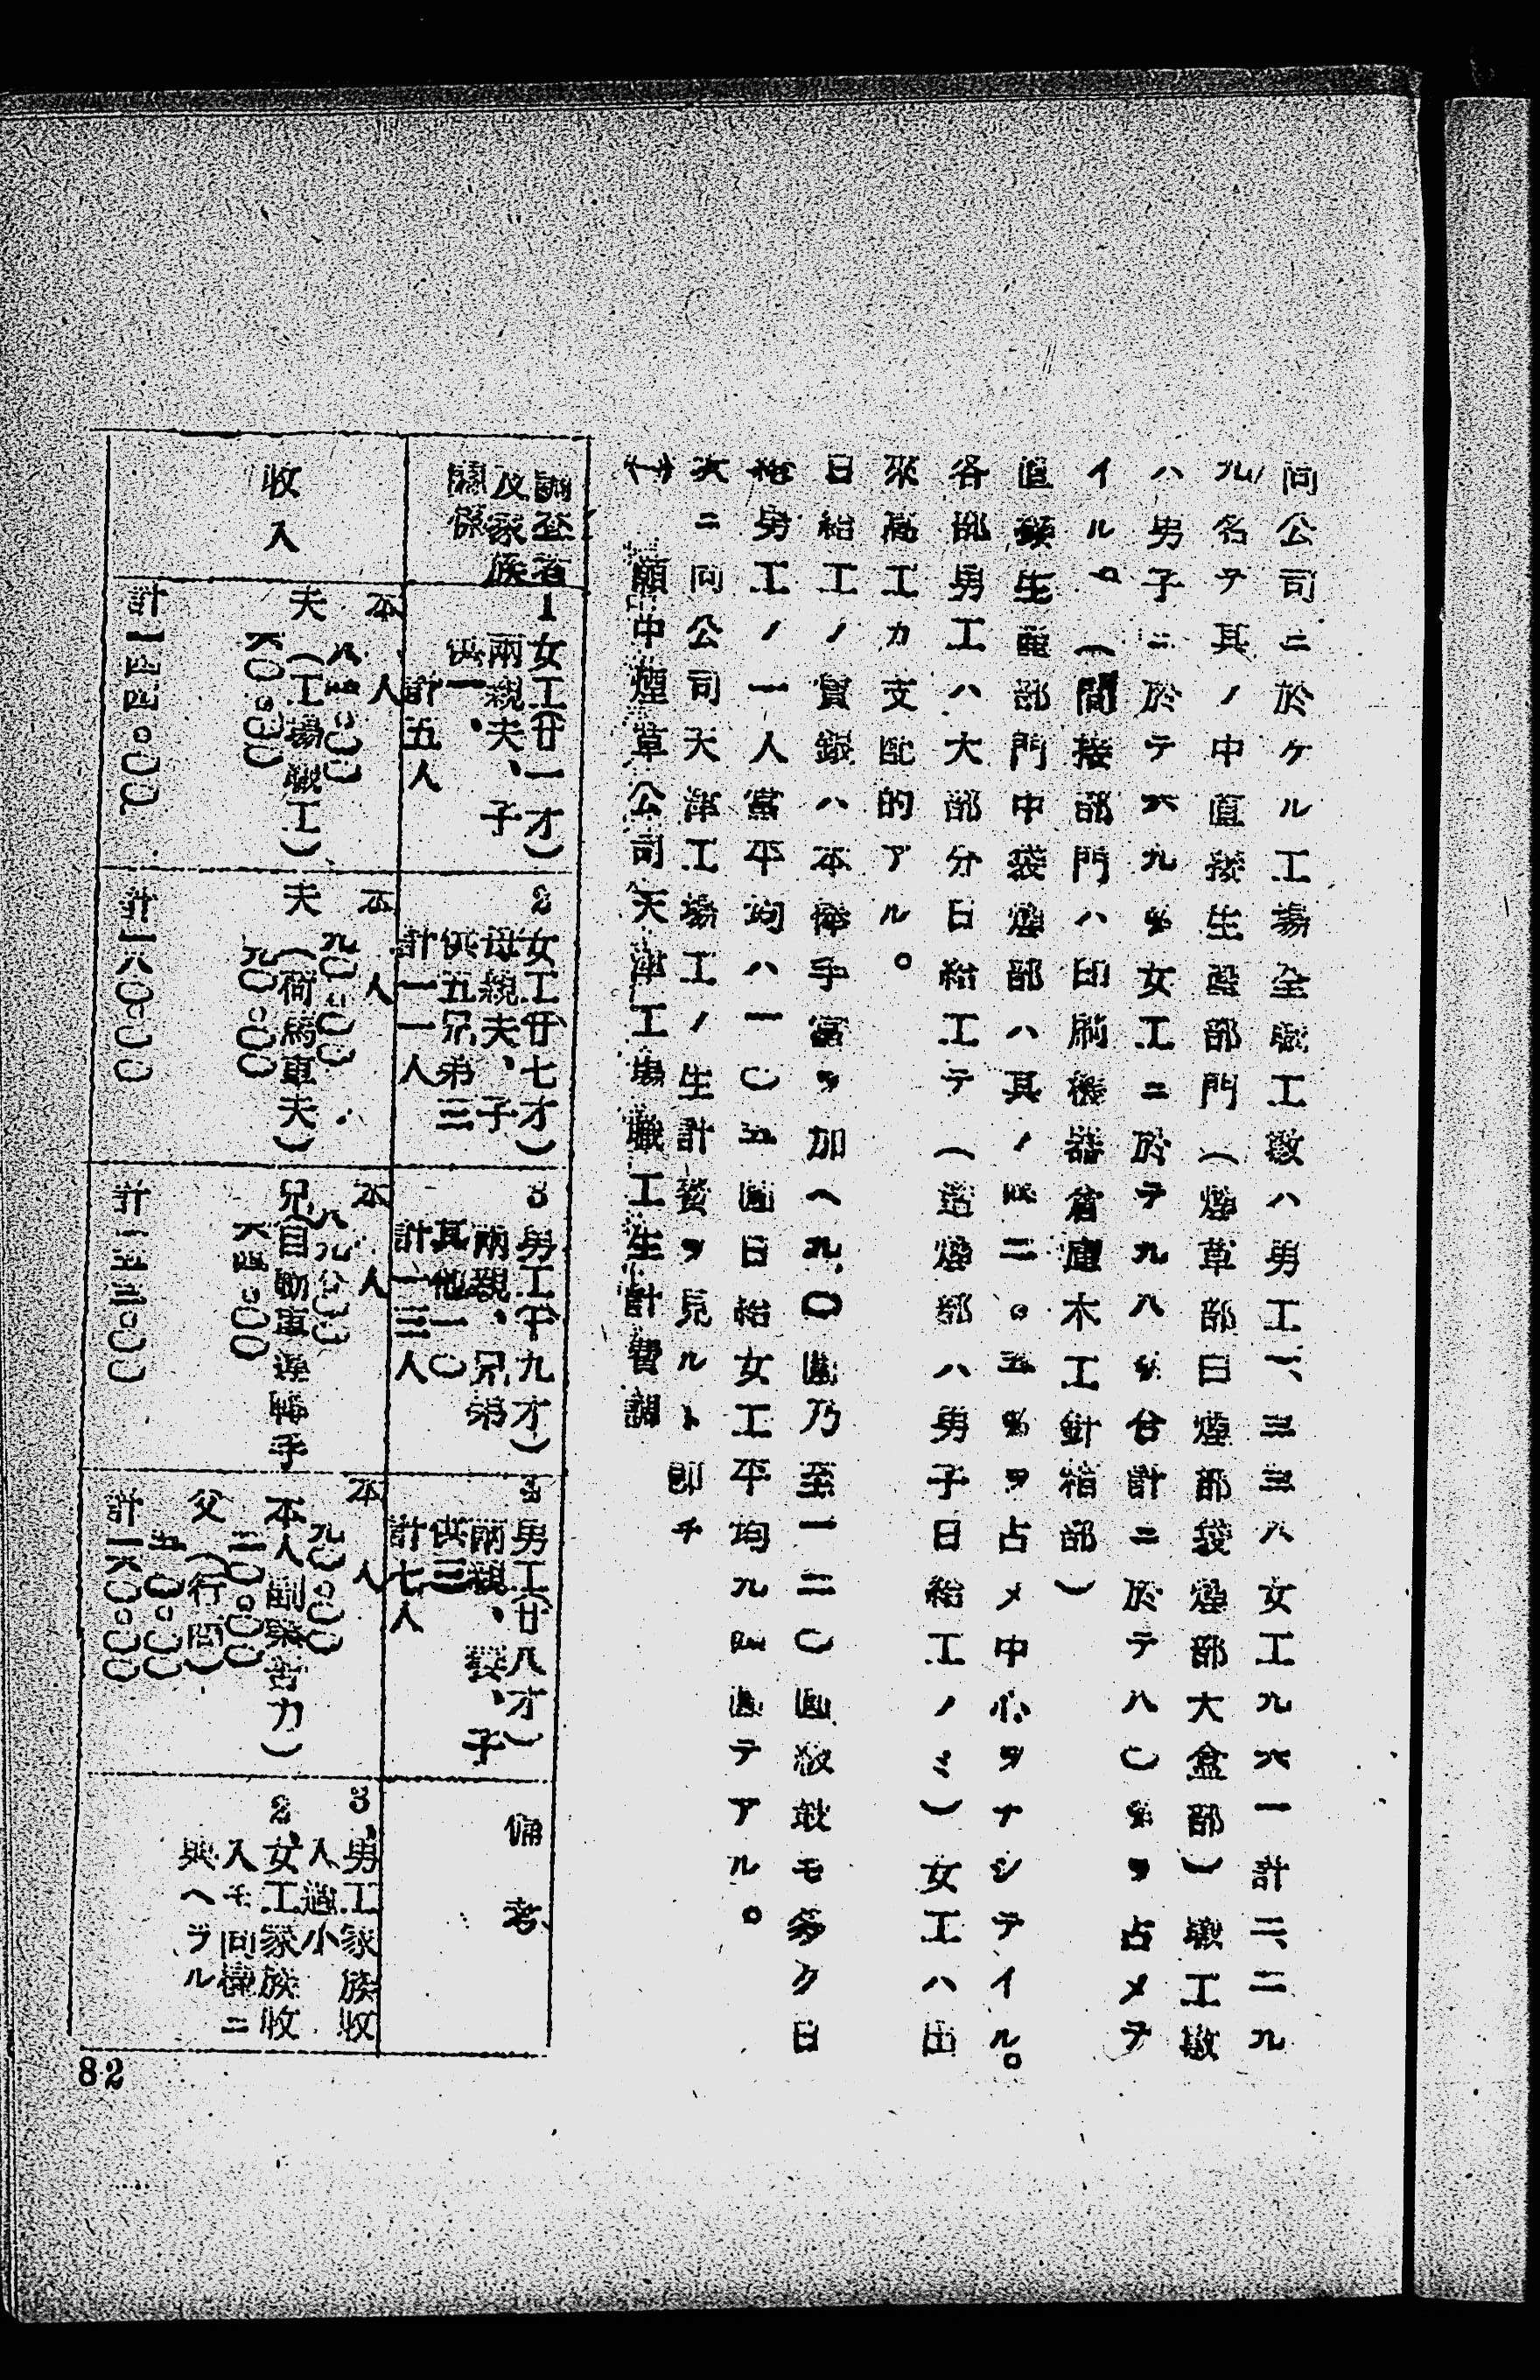 同公司ニ於ケル工場全職工数ハ男工一、三三八女工九六一計二、二九
九名テ其ノ中直接生産部門(煙草部曰煙部袋煙部大盒部)職工数
ハ男子ニ於テ六九%女工ニ於テ九八%合計ニ於テ八〇%ヲ占メテ
イル。(間接部門ハ印刷機器倉庫木工針箱部)
直接生産部門中袋煙部ハ其ノ四二。五%ヲ占メ中心ヲナシテイル。
各部男工ハ大部分日給工テ(造煙部ハ男子日給工ノミ)女工ハ出
來高工カ支配的アル。
日給工ノ賃銀ハ本俸手當ヲ加ヘ九、〇圓乃至一二〇圓級最モ多ク日
給男工ノ一人當平均ハ一〇五圓日給女工平均九四圓テアル。
次ニ同公司天津工場工ノ生計費ヲ見ルト即チ
(1) 頤中煙草公司天津工場職工生計費調
調査者及家族關係
1女工(廿一才)
兩親夫、子
供一、
計五人
2女工(廿七才)
母親夫、子
供五兄弟三
計一一人
3男工(十九才)
兩親、兄弟
其他一〇
計一三人
男工(廿八才)
兩親、妻、子
供三
計七人
備考
收入
本人
八四。〇〇
夫(工場職工)
六〇。〇〇
計一四四。〇〇
本人
九〇。〇〇
夫(荷馬車夫)
九〇。〇〇
計一八〇。〇〇
本人
八九。〇〇
兄(自動車運轉手
六四。〇〇
計一五三。〇〇
本人
九〇。〇〇
本人副業苦力)
二〇。〇〇
父(行商)
五〇。〇〇
計一六〇。〇〇
3、男工家族收
入過小
2、女工家族收
入モ同様ニ
與ヘラル
82